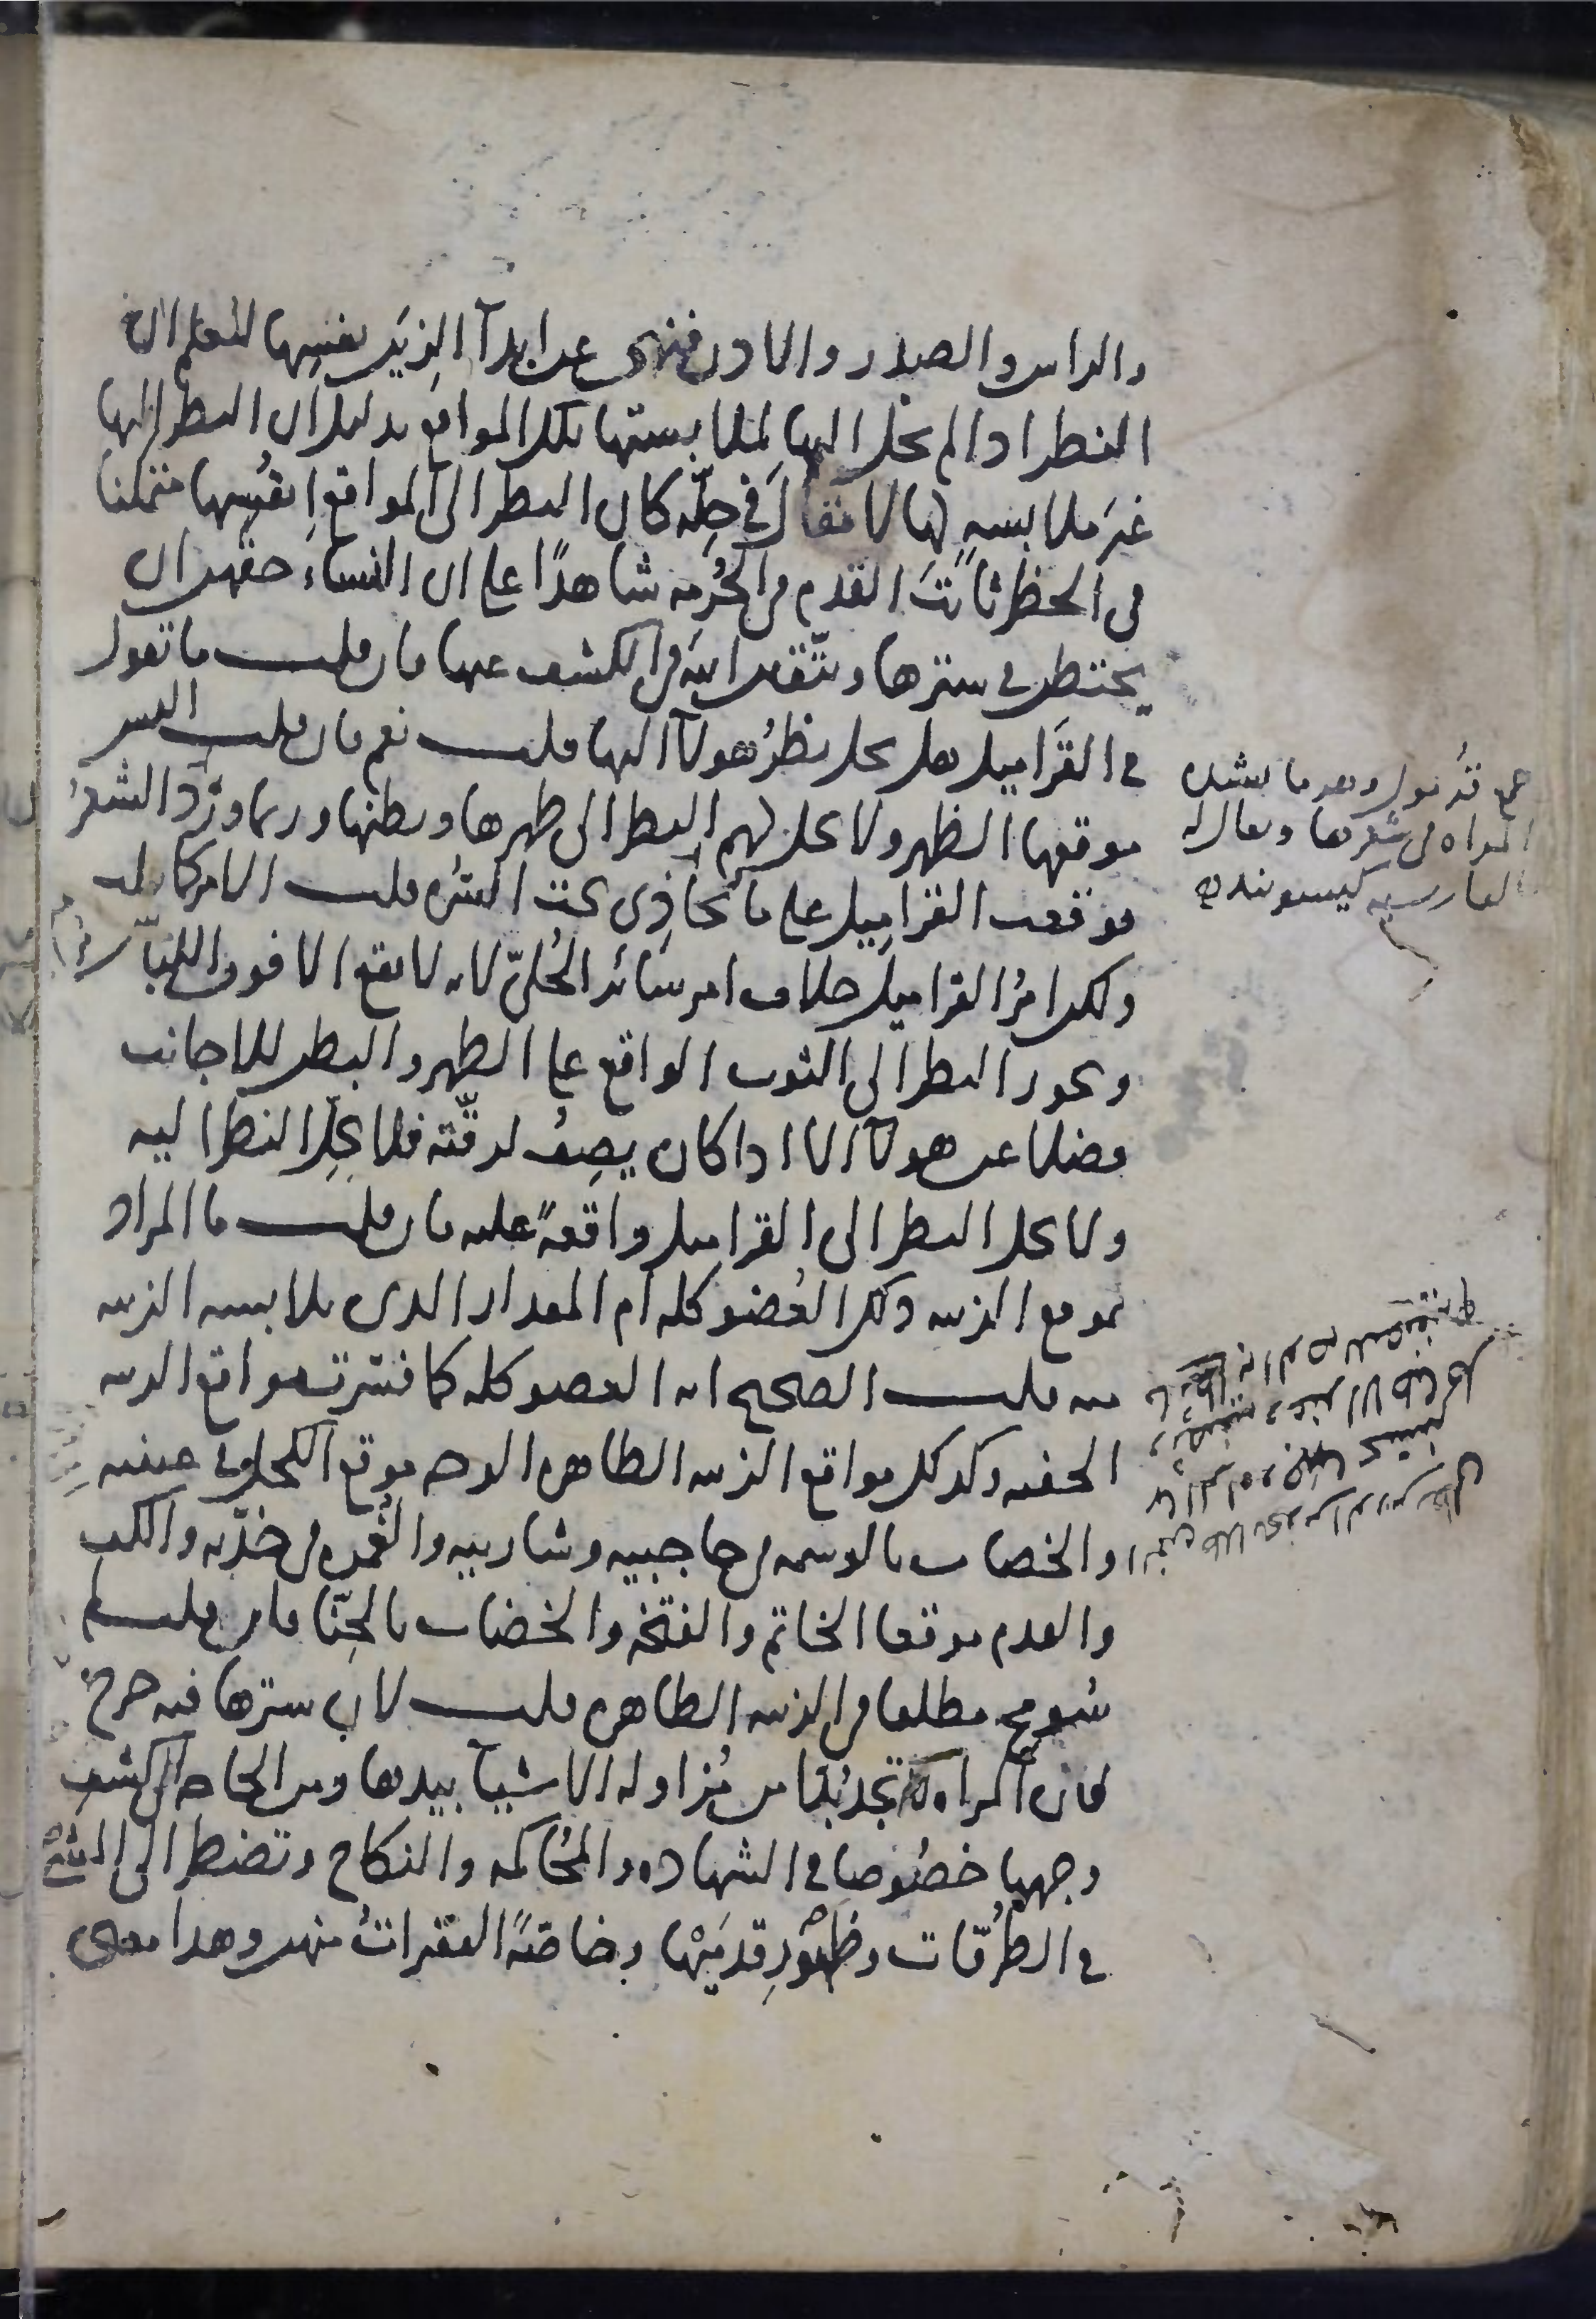 والراس والصدر والاذن فنهى عن ابدآ الزِيَن نفسِها لتعلم ان
النظر اذا لم يحل اليها لملابستها تلك المواقع بدليل ان النظر اليها
غيرَ ملابسهٍ لها لا مقالَ في حِلّه كان النظر الى المواقع انفُسِها متمكنا
في الحظر ثابتَ القدم في الحُرمه شاهدًا على ان النساء حقهن ان
يحتطن في سترها ويتّقين الله في الكشف عنها فان قلت ما تقول
في القَراميل هل يحل نظرُ هولآ اليها قلت نعم فان قلت اليس
موقعها الظهر ولا يحل لهم النظر الى ظهرها وبطنها وربما ورد الشعرُ
فوقعت القراميل على ما يُحاذِى تحت السُره قلت الامر كما قلت
ولكن امرُ القراميل خلاف امر سائر الحُليّ لانه لا يقع الا فوق اللباس
ويجوز النظر الى الثوب الواقع على الظهر والبطن للاجانب
فضلا عن هولآ الا اذا كان يصِفُ لرقّته فلا يحِلّ النظر اليه
ولا يحل النظر الى القراميل واقعةً عليه فان قلت ما المراد
بموقع الزينه ذلك العُضو كله ام المقدار الذى تلابسه الزينه
منه قلت الصحيح انه العضو كله كما فسّرت مواقع الزينه
الخفيه وكذلك مواقع الزينه الظاهره الوجه موقع الكحل في عينيه
والخضاب بالوسمه في حاجبيه وشاربيه والغُمره في خدّيه والكف
والقدم موقعا الخاتم والفتخه والخضاب بالحِنّا فان قلت لم
سُومح مطلقا في الزينه الظاهره قلت لان سترها فيه حرج
فان المراه لا تجد بُدّا من مُزاوله الاشيآ بيدها ومن الحاجه الى كشف
وجهها خصُوصا في الشهاده والمُحاكمه والنكاح وتضطر الى المشي
في الطرُقات وظهُورِ قدمَيْها وخاصّةً الفقيراتُ منهن وهذا معنى
جمع قرمول وهو ما تشده
المراه في شعرها ويقال له
بالفارسيه كيسوبند